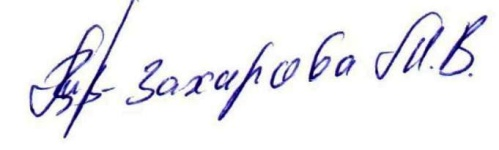 Захарова М.В.